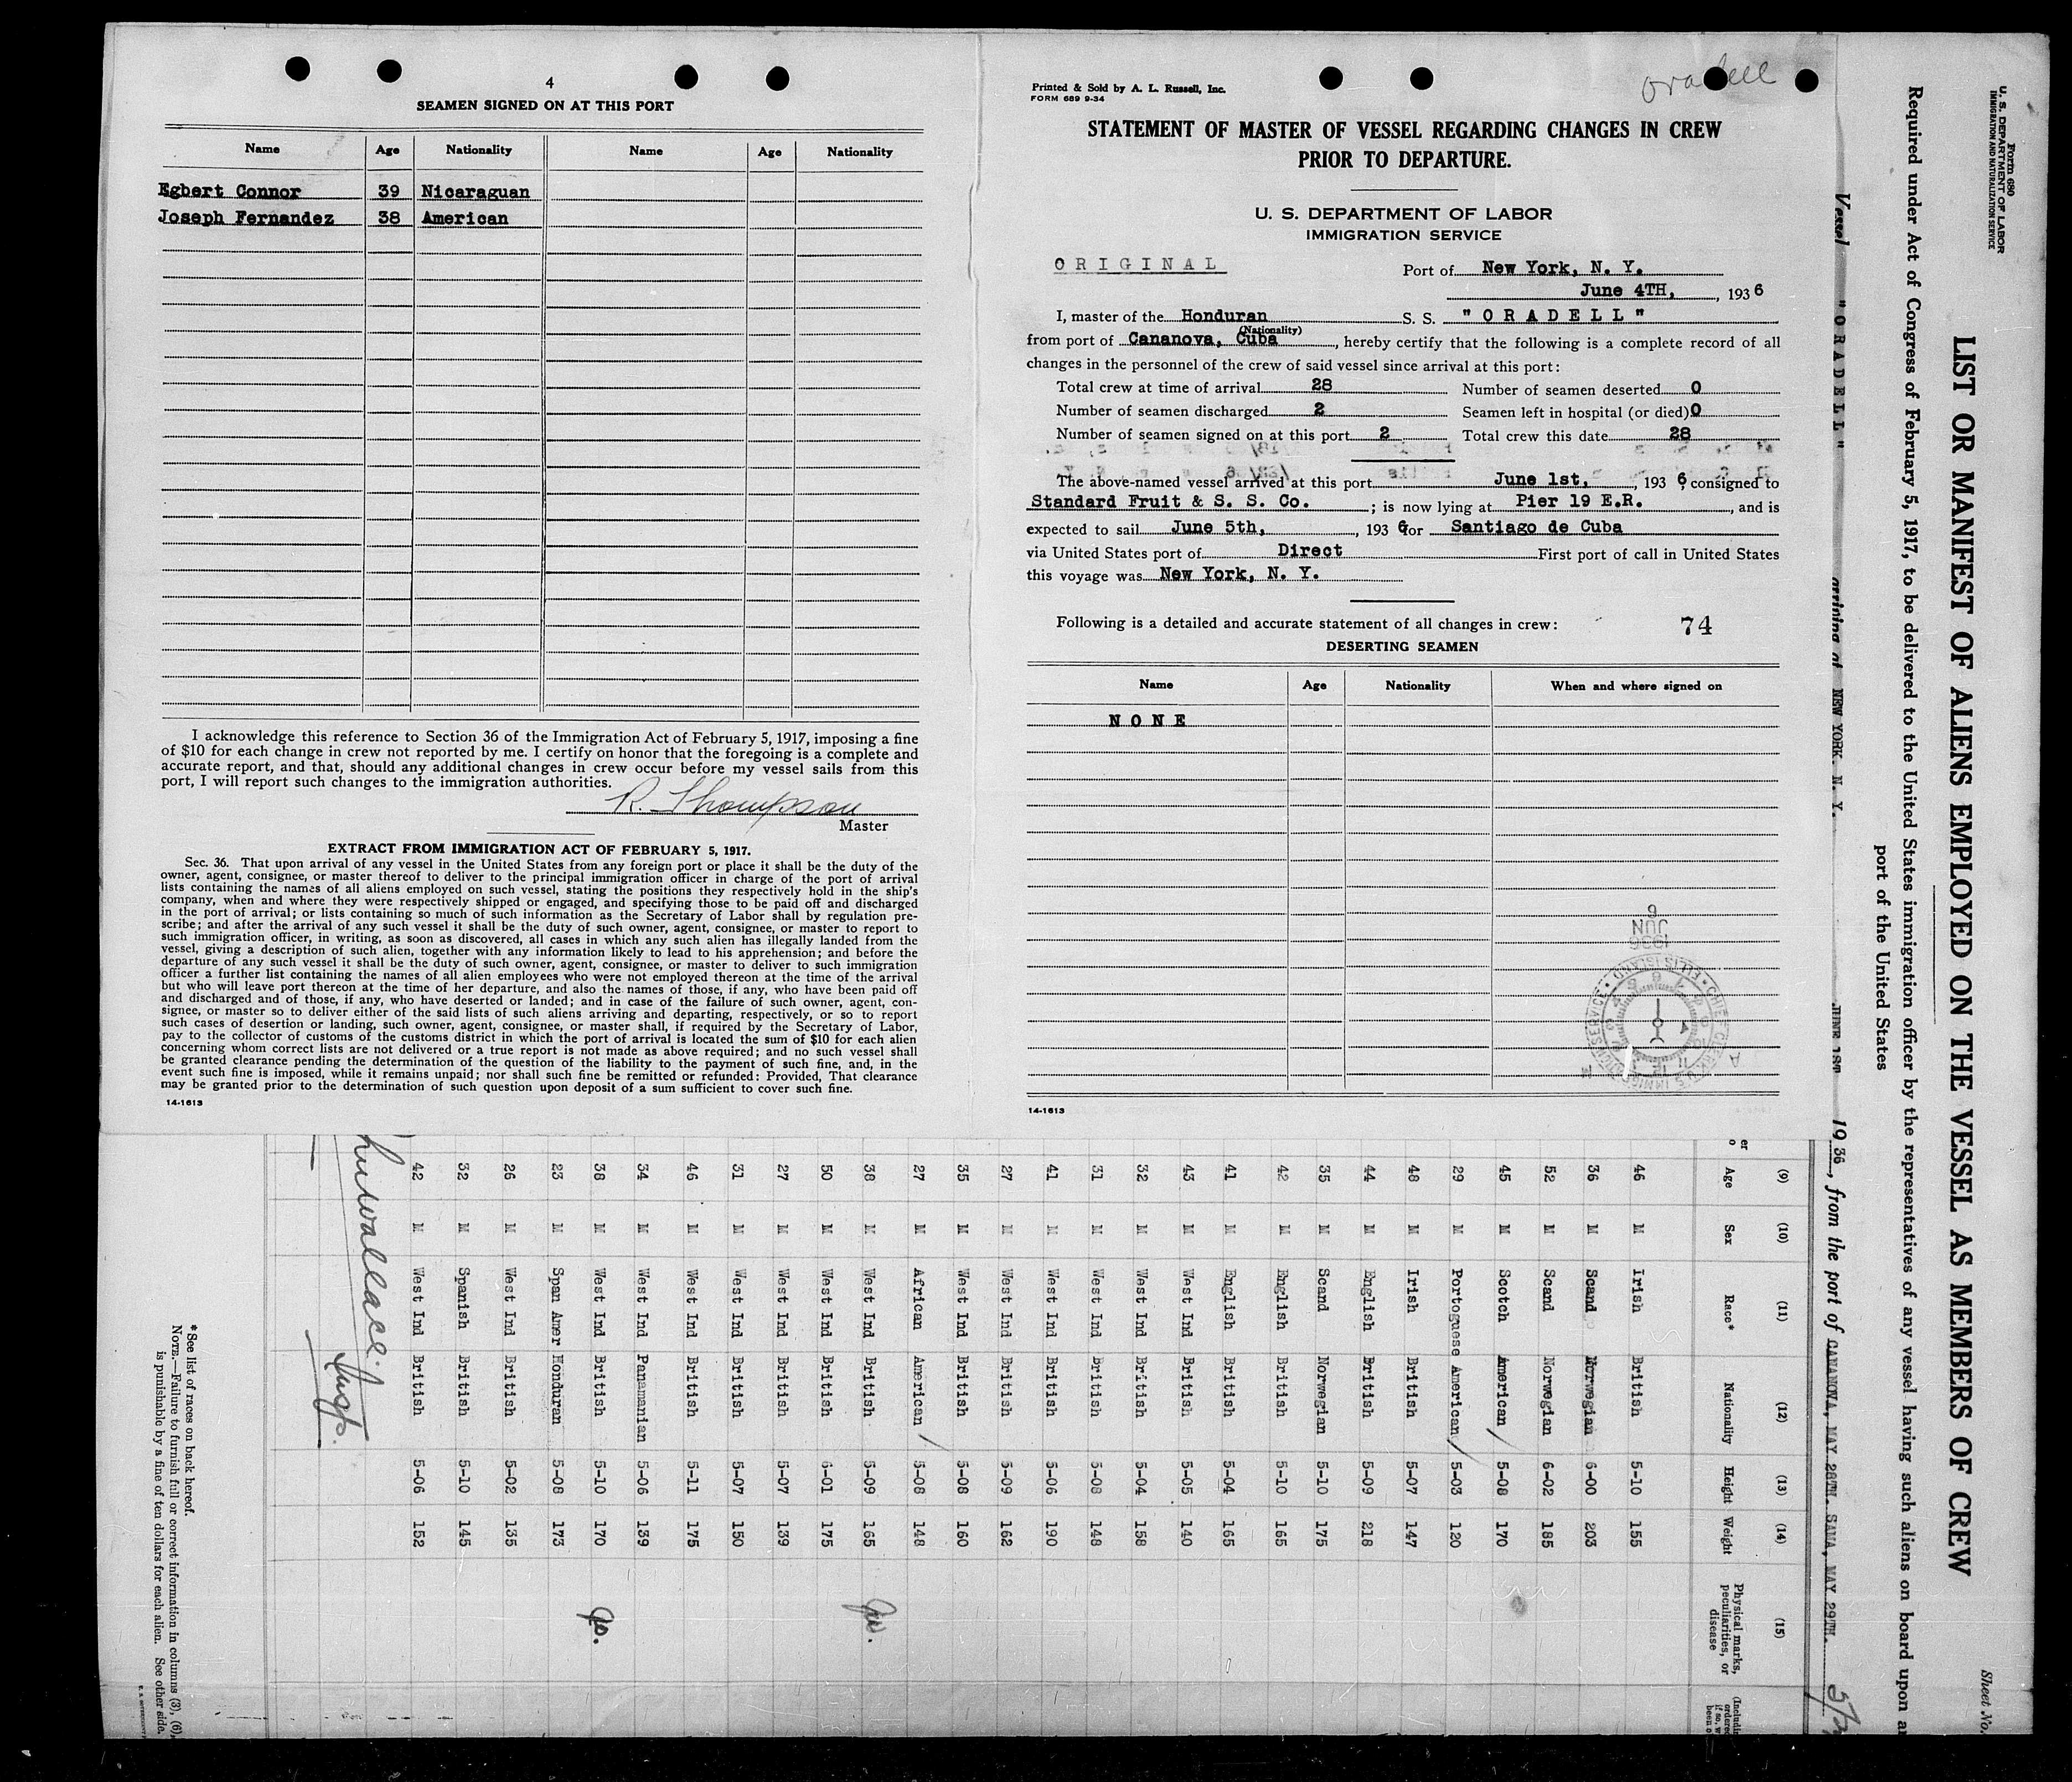 4
SEAMEN SIGNED ON AT THIS PORT
Name Age Nationality Name Age Nationality
Egbert Connor 39 Nicaraguan
Joseph Fernandez 38 American
I acknowledge this reference to Section 36 of the Immigration Act of February 5, 1917, imposing a fine
of $10 for each change in crew not reported by me. I certify on honor that the foregoing is a complete and
accurate report, and that, should any additional changes in crew occur before my vessel sails from this
port, I will report such changes to the immigration authorities.
R. Thompson
Master
EXTRACT FROM IMMIGRATION ACT OF FEBRUARY 5, 1917.
Sec. 36. That upon arrival of any vessel in the United States from any foreign port or place it shall be the duty of the
owner, agent, consignee, or master thereof to deliver to the principal immigration officer in charge of the port of arrival
lists containing the names of all aliens employed on such vessel, stating the positions they respectively hold in the ship's
company, when and where they were respectively shipped or engaged, and specifying those to be paid off and discharged
in the port of arrival; or lists containing so much of such information as the Secretary of Labor shall by regulation pre-
scribe; and after the arrival of any such vessel it shall be the duty of such owner, agent, consignee, or master to report to
such immigration officer, in writing, as soon as discovered, all cases in which any such alien has illegally landed from the
vessel, giving a description of such alien, together with any information likely to lead to his apprehension; and before the
departure of any such vessel it shall be the duty of such owner, agent, consignee, or master to deliver to such immigration
officer a further list containing the names of all alien employees who were not employed thereon at the time of the arrival
but who will leave port thereon at the time of her departure, and also the names of those, if any, who have been paid off
and discharged and of those, if any, who have deserted or landed; and in case of the failure of such owner, agent, con-
signee, or master so to deliver either of the said lists of such aliens arriving and departing, respectively, or so to report
such cases of desertion or landing, such owner, agent, consignee, or master shall, if required by the Secretary of Labor,
pay to the collector of customs of the customs district in which the port of arrival is located the sum of $10 for each alien
concerning whom correct lists are not delivered or a true report is not made as above required; and no such vessel shall
be granted clearance pending the determination of the question of the liability to the payment of such fine, and, in the
event such fine is imposed, while it remains unpaid; nor shall such fine be remitted or refunded: Provided, That clearance
may be granted prior to the determination of such question upon deposit of a sum sufficient to cover such fine.
14-1613
Printed & Sold by A. L. Russell, Inc.
FORM 689 9-34
Oradell
STATEMENT OF MASTER OF VESSEL REGARDING CHANGES IN CREW
PRIOR TO DEPARTURE.
U. S. DEPARTMENT OF LABOR
IMMIGRATION SERVICE
ORIGINAL
Port of New York, N. Y.
June 4TH, , 1936
I, master of the Honduran S. S. "ORADELL"
(Nationality)
from port of Cananova, Cuba , hereby certify that the following is a complete record of all
changes in the personnel of the crew of said vessel since arrival at this port:
Total crew at time of arrival 28 Number of seamen deserted 0
Number of seamen discharged 2 Seamen left in hospital (or died) 0
Number of seamen signed on at this port 2 Total crew this date 28
The above-named vessel arrived at this port June 1st, , 1936, consigned to
Standard Fruit & S. S. Co. ; is now lying at Pier 19 E.R. , and is
expected to sail June 5th, , 1936 for Santiago de Cuba
via United States port of Direct First port of call in United States
this voyage was New York, N. Y.
Following is a detailed and accurate statement of all changes in crew: 74
DESERTING SEAMEN
Name Age Nationality When and where signed on
NONE
1936
JUN
6
14-1613
Form 680
U. S. DEPARTMENT OF LABOR
IMMIGRATION AND NATURALIZATION SERVICE
Sheet No.
LIST OR MANIFEST OF ALIENS EMPLOYED ON THE VESSEL AS MEMBERS OF CREW
Required under Act of Congress of February 5, 1917, to be delivered to the United States immigration officer by the representatives of any vessel having such aliens on board upon
port of the United States
Vessel "ORADELL" arriving at NEW YORK, N. Y. JUNE 1ST 1936, from the port of CANANOVA, MAY 28TH. SAMA, MAY 29TH.
(9) (10) (11) (12) (13) (14) (15)
Age Sex Race* Nationality Height Weight Physical marks, peculiarities, or disease
46 M Irish British 5-10 155
36 M Scand Norwegian 6-00 203
52 M Scand Norwegian 6-02 185
45 M Scotch American 5-08 170
29 M Portoguese American 5-03 120
48 M Irish British 5-07 147
44 M English British 5-09 218
35 M Scand Norwegian 5-10 175
42 M English British 5-10 165
41 M English British 5-04 165
43 M West Ind British 5-05 140
32 M West Ind British 5-04 158
31 M West Ind British 5-08 148
41 M West Ind British 5-06 190
27 M West Ind British 5-09 162
35 M West Ind British 5-08 160
27 M African American 5-08 148
38 M West Ind British 5-09 165
50 M West Ind British 6-01 175
27 M West Ind British 5-07 139
31 M West Ind British 5-07 150
46 M West Ind British 5-11 175
34 M West Ind Panamanian 5-06 139
38 M West Ind British 5-10 170
23 M Span Amer Honduran 5-08 173
26 M West Ind British 5-02 135
32 M Spanish British 5-10 145
42 M West Ind British 5-06 152
Insp.
*See list of races on back hereof.
NOTE.—Failure to furnish full or correct information in columns (3), (6),
is punishable by a fine of ten dollars for each alien. See other side.